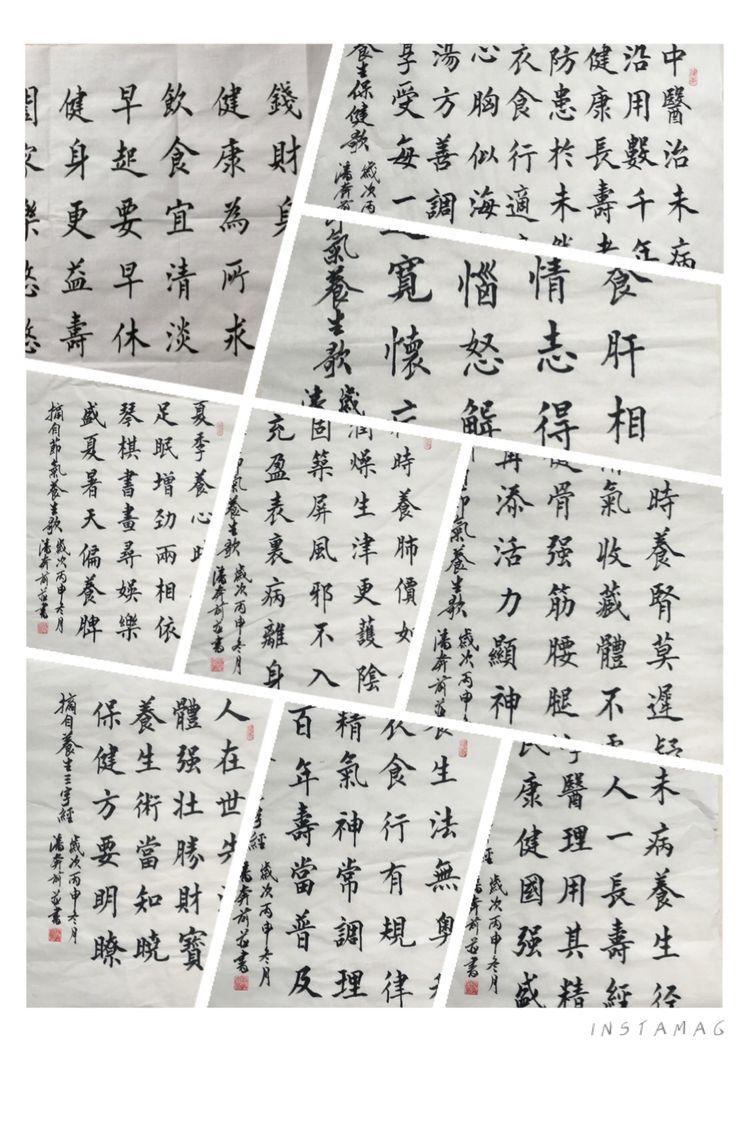 錢財身
健康為所求
飲食宜清淡
早起要早休
健身更益壽
闔家樂悠悠
中醫治未病
沿用數千年
健康長壽者
防患於未然
衣食行適
心胸似海
湯方善調
享受每一
食生保健歌
歲次丙
潘奔前
食肝相
情志得
惱怒解
寬懷
氣養生歌
歲
潘
夏季養心
足眠增勁兩相依
琴棋書畫尋娛樂
盛夏暑天偏養脾
摘自節氣養生歌
歲次丙申冬月
潘奔前並書
時養肺價如
潤燥生津更護陰
固築屏風邪不入
充盈表裏病離身
節氣養生歌
歲次丙申冬月
潘奔前並書
時養腎莫遲疑
氣收藏體不
健骨强筋腰腿
再添活力顯神
節氣養生歌
歲次丙申冬月
潘奔前並書
人在世先
體强壯勝財寶
養生術當知曉
保健方要明瞭
摘自養生三字經
歲次丙申冬月
潘奔前並書
養生法無奧
飲食行有規律
精氣神常調理
百年壽當普及
字經
歲次丙申冬月
潘奔前並書
未病養生徑
人一長壽經
醫理用其精
民康健國强盛
經
歲次丙申冬月
潘奔前並書
INSTAMAG